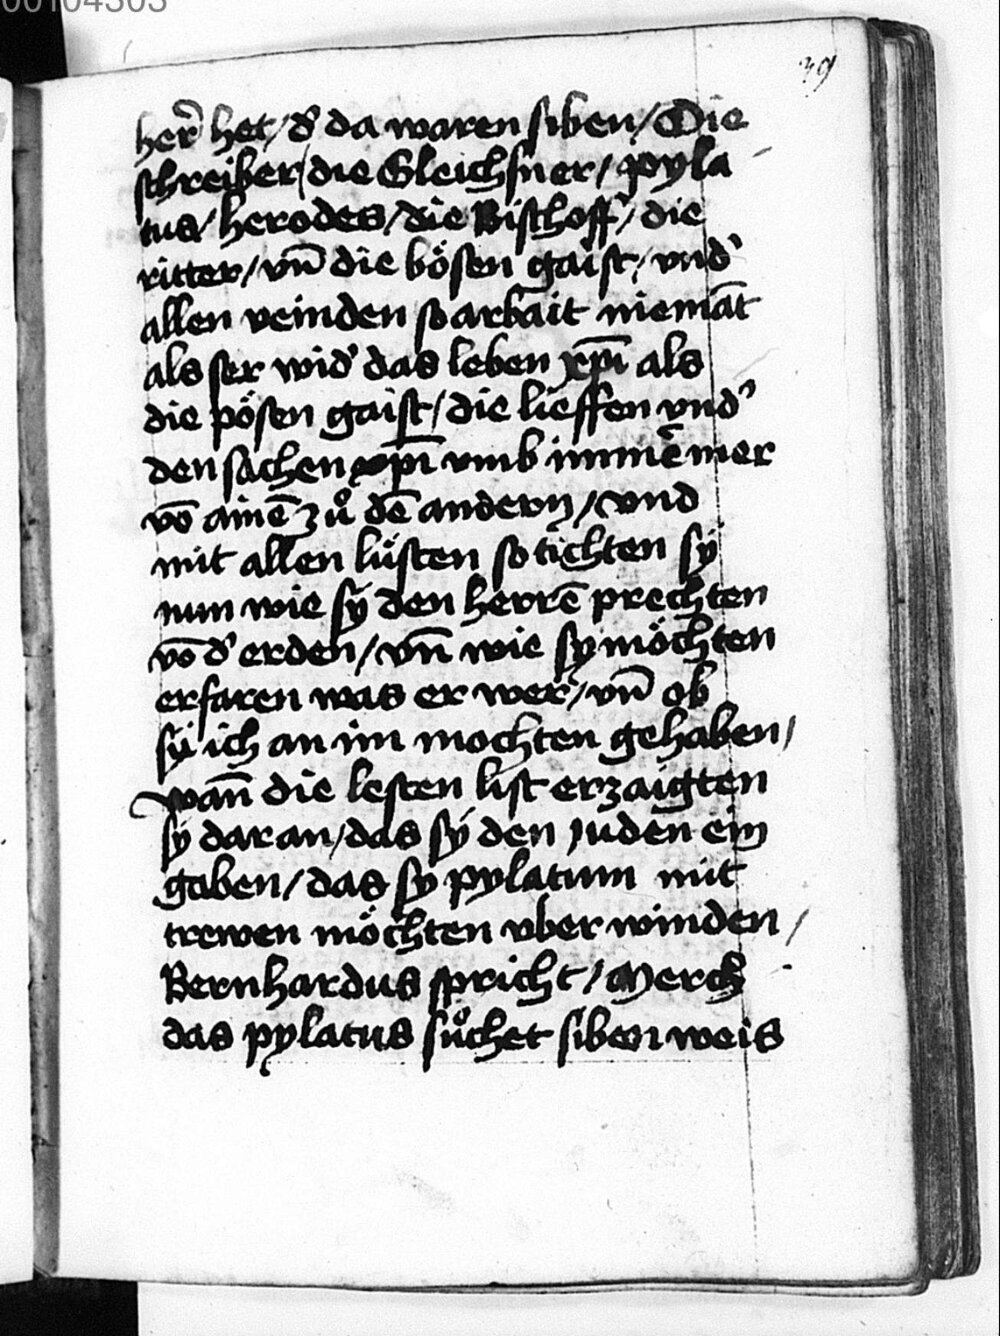 00104303
39
her̄ het / d' da waren siben / Die
schreiber / die Gleichsner / pyla
tus / herodes / die Bischoff / die
ritter / vn̄ die bösen gaist / vnd'
allen veinden so arbait niemāt
als ser wid' das leben xp̄i als
die pösen gaist / die lieffen vnd'
den sachen xp̄i vmb immē mer
vō ainē zů dē andern / vnd
mit allen lüsten so tichten sÿ
nun wie sÿ den herrē prechten
vō d' erden / vn̄ wie sy möchten
erfaren was er wer / vn̄ ob
sÿ ich an im mochten gehaben /
wan̄ die lesten list erzaigten
sÿ daran / das sÿ den juden ein
gaben / das sy pylatum mit
trewen möchten vber winden /
Bernhardus spricht / Merck
das pylatus sůchet siben weis